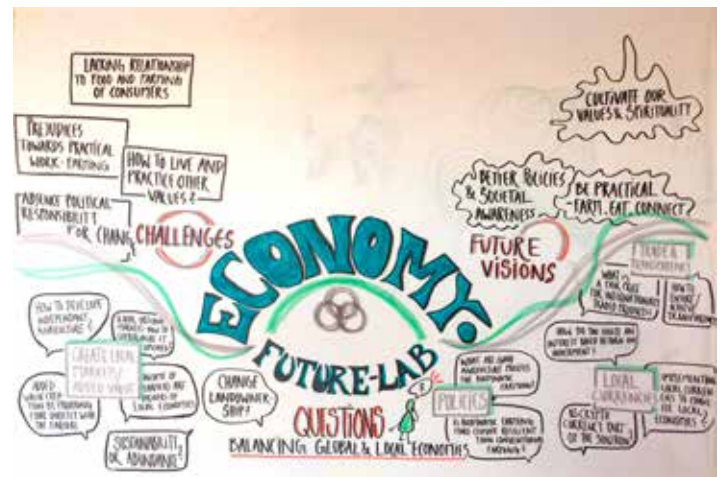 LACKING RELATIONSHIP
TO FOOD AND FARMING
OF CONSUMERS
PREJUDICES
TOWARDS PRACTICAL
WORK-FARMING
HOW TO LIVE AND
PRACTICE OTHER
VALUES?
ABSENCE POLITICAL
RESPONSIBILITY
FOR CHANGE
CHALLENGES
CULTIVATE OUR
VALUES & SPIRITUALITY
BETTER POLICIES
& SOCIETAL
AWARENESS
BE PRACTICAL
-FARM. EAT. CONNECT?
FUTURE
VISIONS
ECONOMY.
FUTURE-LAB
QUISTIONS
BALANCING GLOBAL & LOCAL ECONOMIES
HOW TO DEVELOP
INDEPENDENT
AGRICULTURE?
CREATE LOCAL
MARKETS/
ADDED VALUE
ADDED
DIRECTLY WITH
THE FARMERS
LOCAL ECONOMIES
SUSTAINABILITY
OR ABUNDANCE?
CHANGE
LANDOWNER-
SHIP?
POLICIES
WHAT ARE GOOD
IS BIODYNAMIC FARMING
MORE CLIMATE RESILIENT
THAN CONVENTIONAL
FARMING?
TRADE &
TRANSPARENCY
WHAT IS
A FAIR PRICE
FOR INTERNATIONALLY
TRADED PRODUCTS?
HOW TO
TRANSPARENCY
LOCAL
CURRENCIES
IS CRYPTO
CURRENCY PART
OF THE SOLUTION?
IMPLEMENTING
LOCAL CURRENCIES
FOR LOCAL
ECONOMIES?